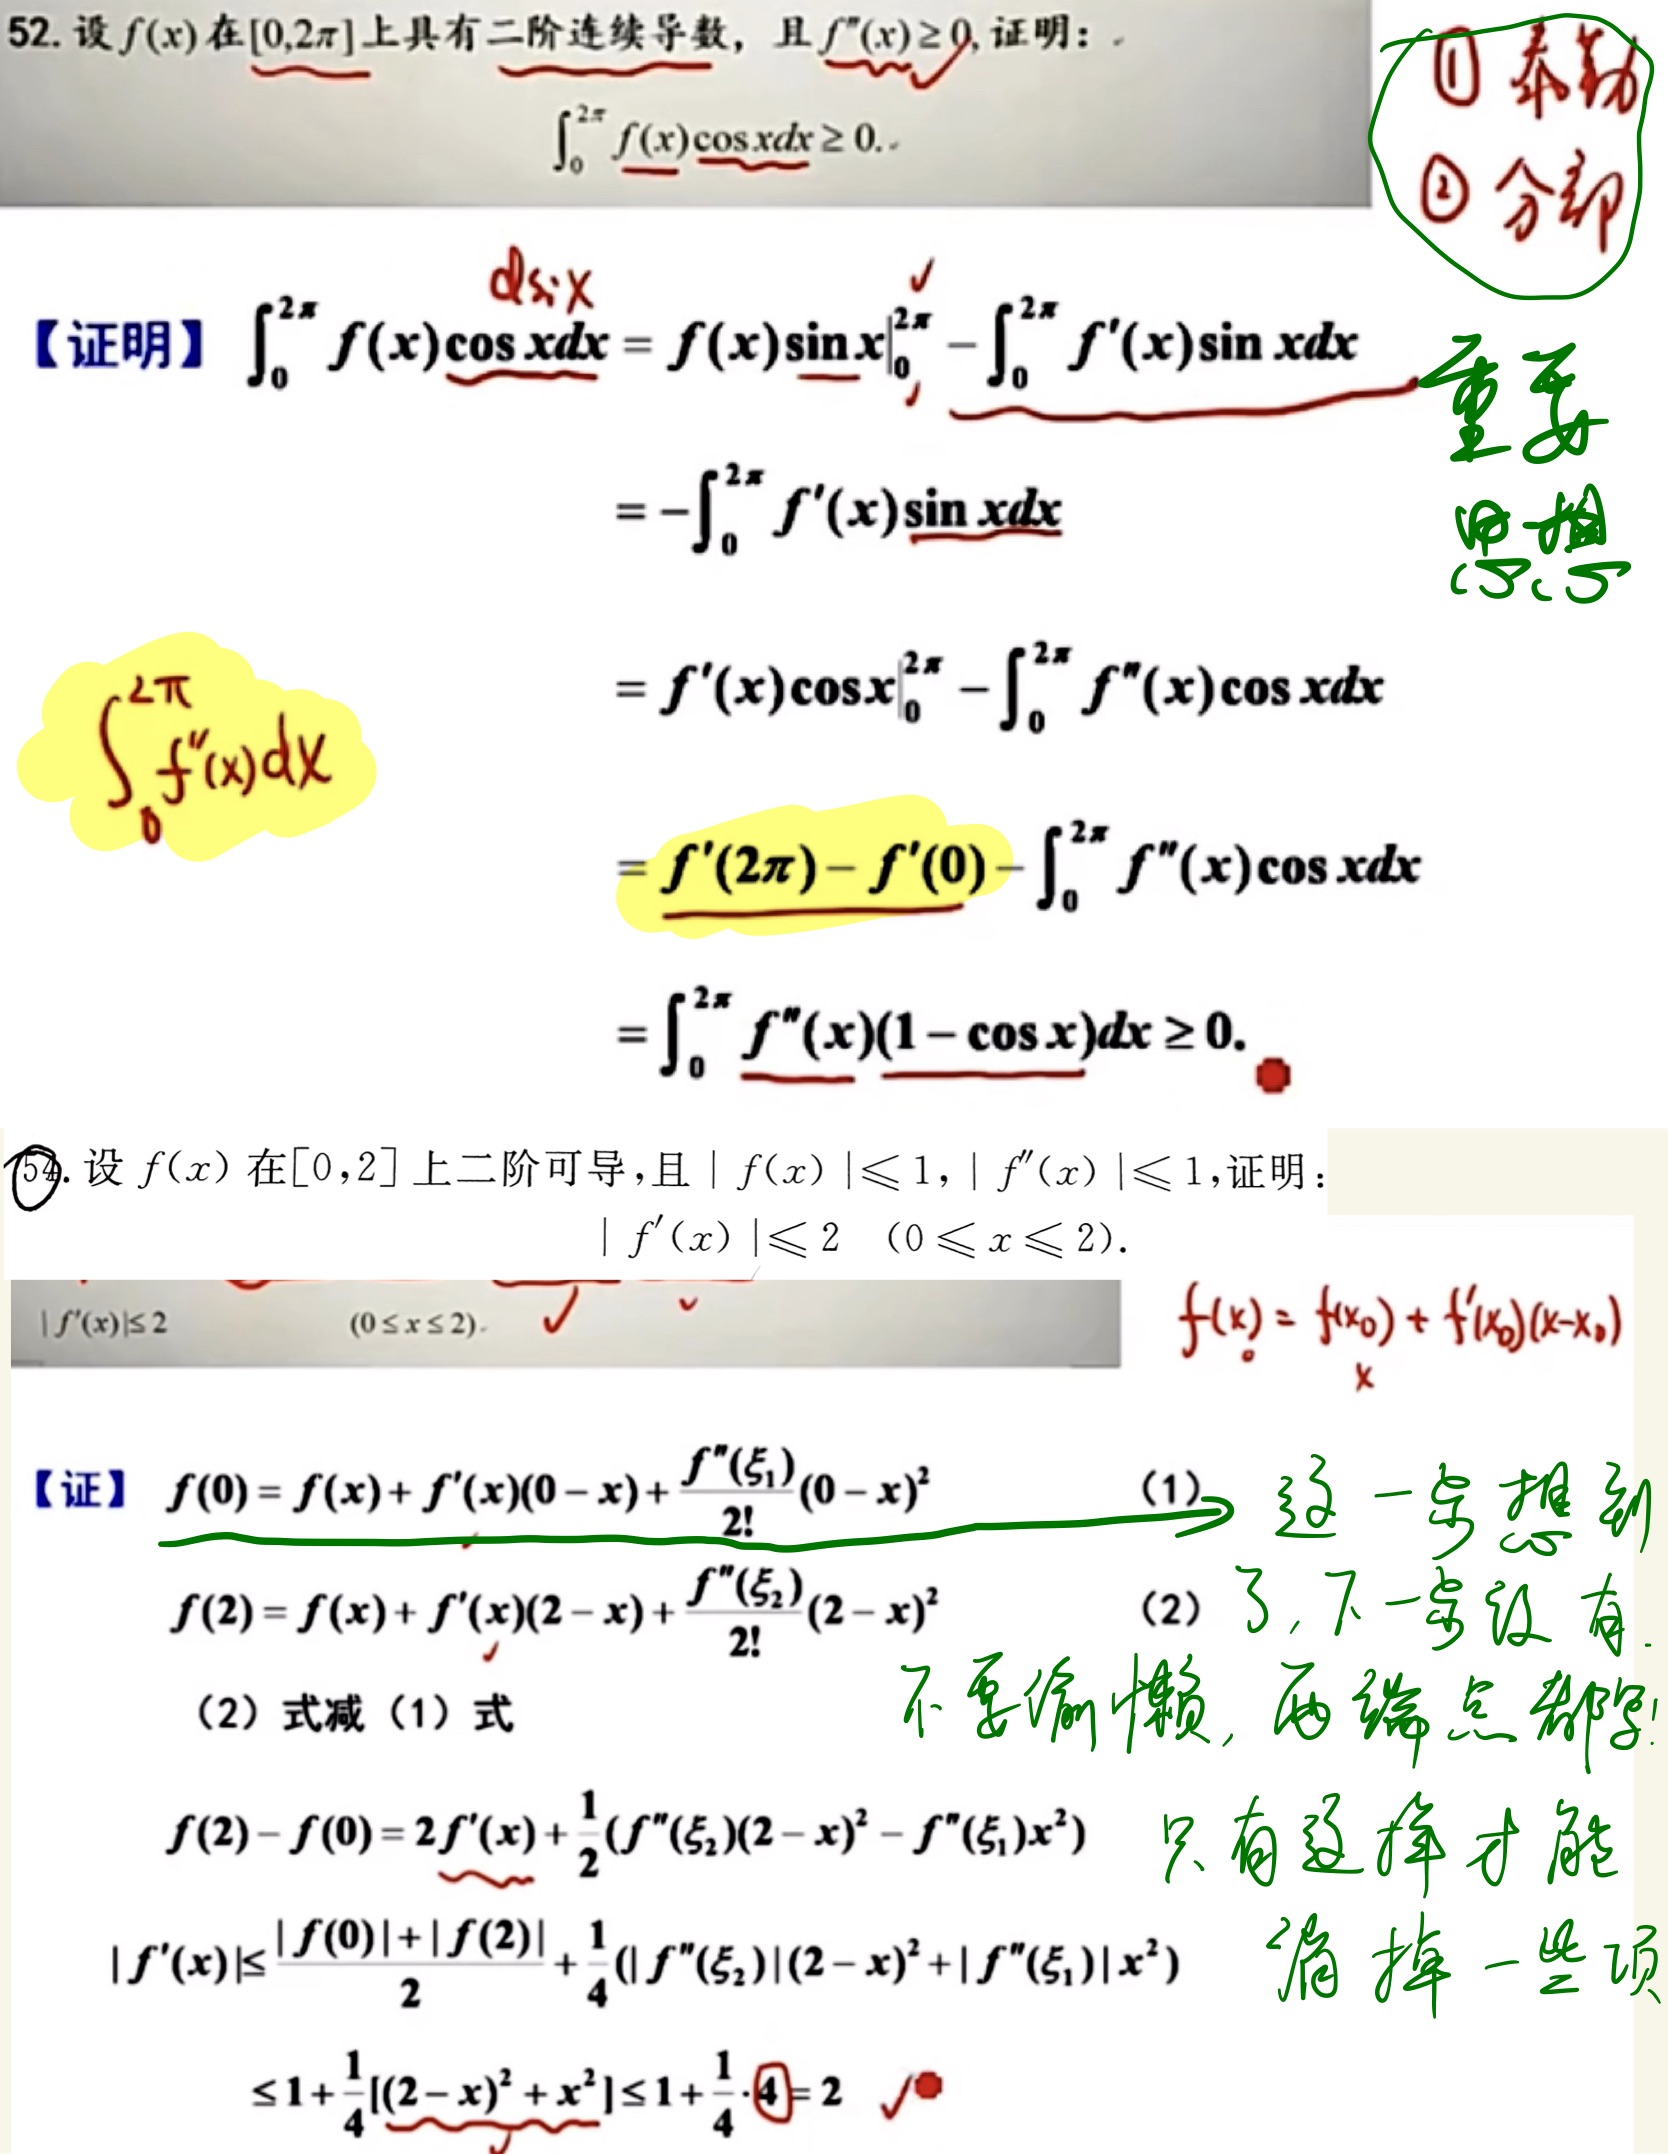 52. 设 f(x) 在[0,2π]上具有二阶连续导数，且 f″(x)≥0, 证明：
∫₀^{2π} f(x)cos xdx ≥ 0.
① 泰勒
② 分部
dsix
【证明】 ∫₀^{2π} f(x)cos xdx = f(x)sin x|₀^{2π} − ∫₀^{2π} f′(x)sin xdx
重要
思想
= −∫₀^{2π} f′(x)sin xdx
= f′(x)cosx|₀^{2π} − ∫₀^{2π} f″(x)cos xdx
∫₀^{2π} f″(x)dx
= f′(2π) − f′(0) − ∫₀^{2π} f″(x)cos xdx
= ∫₀^{2π} f″(x)(1−cos x)dx ≥ 0.
54. 设 f(x) 在[0,2]上二阶可导,且 | f(x) |≤1, | f″(x) |≤1,证明:
| f′(x) |≤ 2 (0 ≤ x ≤ 2).
|f′(x)|≤2 (0≤x≤2).
f(x) = f(x₀) + f′(x₀)(x−x₀)
x
【证】 f(0) = f(x) + f′(x)(0−x) + f″(ξ₁)/2! (0−x)² （1）
这一步想到
f(2) = f(x) + f′(x)(2−x) + f″(ξ₂)/2! (2−x)² （2）
了,下一步没有.
（2）式减（1）式
不要偷懒,两端点都写!
f(2) − f(0) = 2f′(x) + 1/2 (f″(ξ₂)(2−x)² − f″(ξ₁)x²)
只有这样才能
|f′(x)|≤ (|f(0)|+|f(2)|)/2 + 1/4 (|f″(ξ₂)|(2−x)² + |f″(ξ₁)|x²)
消掉一些项
≤ 1 + 1/4 [(2−x)² + x²] ≤ 1 + 1/4 · 4 = 2